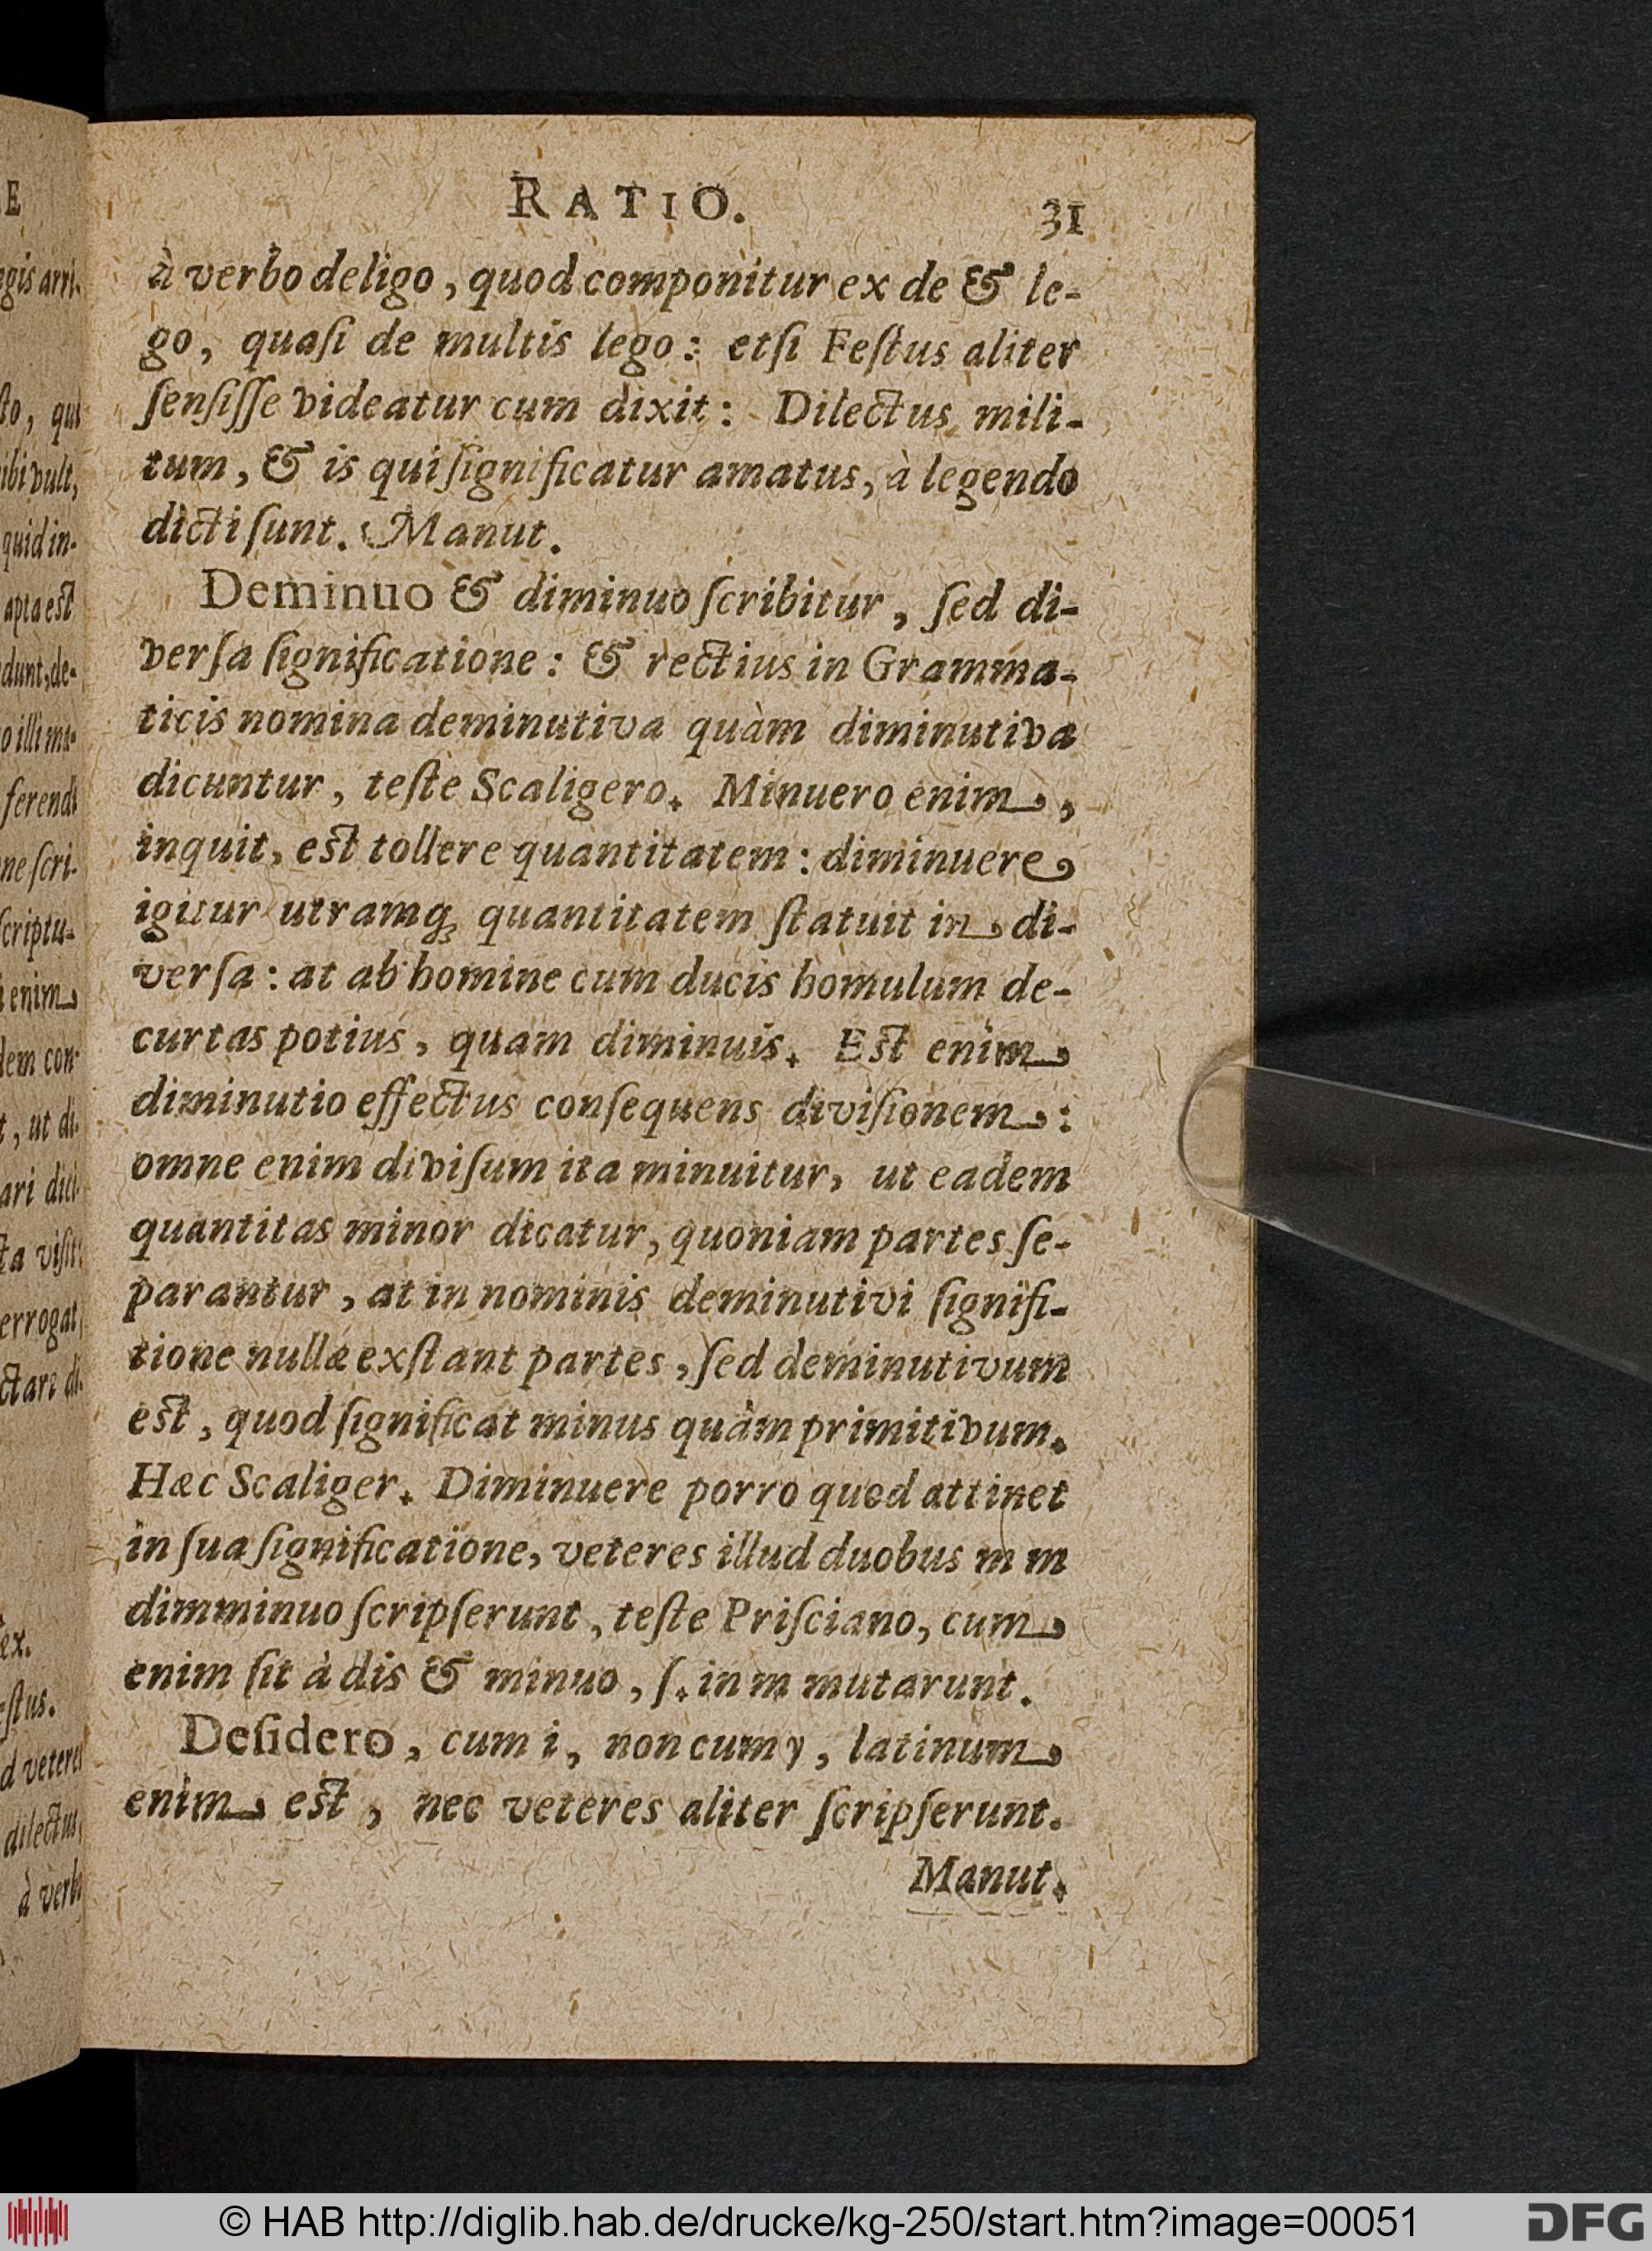 RATIO. 31
à verbo deligo, quod componitur ex de & le-
go, quaſi de multis lego: etſi Feſtus aliter
ſenſiſſe videatur cum dixit: Dilectus mili-
tum, & is qui ſignificatur amatus, à legendo
dicti ſunt. Manut.
Deminuo & diminuo ſcribitur, ſed di-
verſa ſignificatione: & rectius in Gramma-
ticis nomina deminutiva quàm diminutiva
dicuntur, teſte Scaligero. Minuero enim,
inquit, eſt tollere quantitatem: diminuere
igitur utramq; quantitatem ſtatuit in di-
verſa: at ab homine cum ducis homulum de-
curtas potius, quam diminuis. Eſt enim
diminutio effectus conſequens diviſionem:
omne enim diviſum ita minuitur, ut eadem
quantitas minor dicatur, quoniam partes ſe-
parantur, at in nominis deminutivi ſignifi-
tione nullæ exſtant partes, ſed deminutivum
eſt, quod ſignificat minus quàm primitivum.
Hæc Scaliger. Diminuere porro quod attinet
in ſua ſignificatione, veteres illud duobus m m
dimminuo ſcripſerunt, teſte Priſciano, cum
enim ſit à dis & minuo, ſ. in m mutarunt.
Deſidero, cum i, non cum y, latinum
enim eſt, nec veteres aliter ſcripſerunt.
Manut.
E
egis arri-
ſto, qui
ibi vult,
quid in-
apta eſt
dunt, de-
ferendi
ne ſcri-
ſcriptu-
enim
dem con-
t, ut di-
ari dici-
ta viſit:
errogat,
ctari di-
ex.
eſtus.
d veteres
dilectus,
à verbo
© HAB http://diglib.hab.de/drucke/kg-250/start.htm?image=00051
DFG